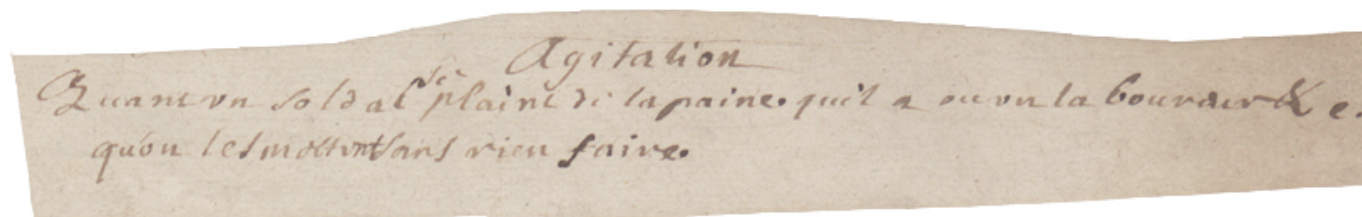 Agitation
Quant un soldat se plaint de la paine. quil a ou un laboureur & c.
quon les mettent sans rien faire.